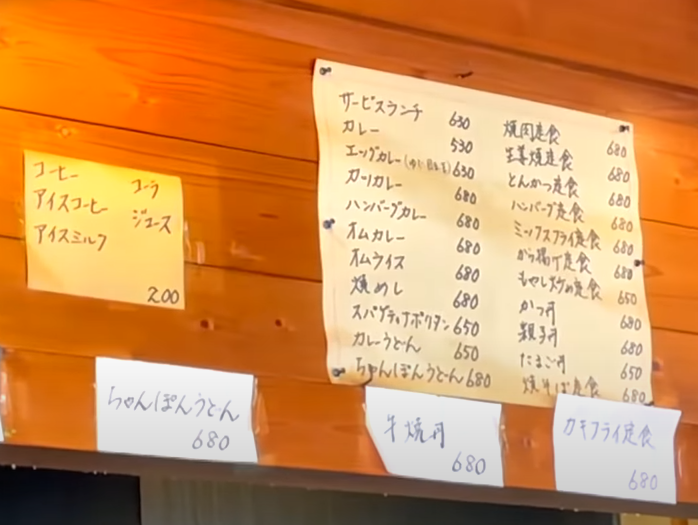 コーヒー コーラ
アイスコーヒー ジュース
アイスミルク
200
サービスランチ 630
カレー 530
エッグカレー 630
カツカレー 680
ハンバーグカレー 680
オムカレー 680
オムライス 680
焼めし 680
スパゲティナポリタン 650
カレーうどん 650
ちゃんぽんうどん 680
焼肉定食 680
生姜焼定食 680
とんかつ定食 680
ハンバーグ定食 680
ミックスフライ定食 680
から揚げ定食 680
もやし炒め定食 650
かつ丼 680
親子丼 680
たまご丼 650
焼そば定食 680
ちゃんぽんうどん
680
牛焼丼
680
カキフライ定食
680